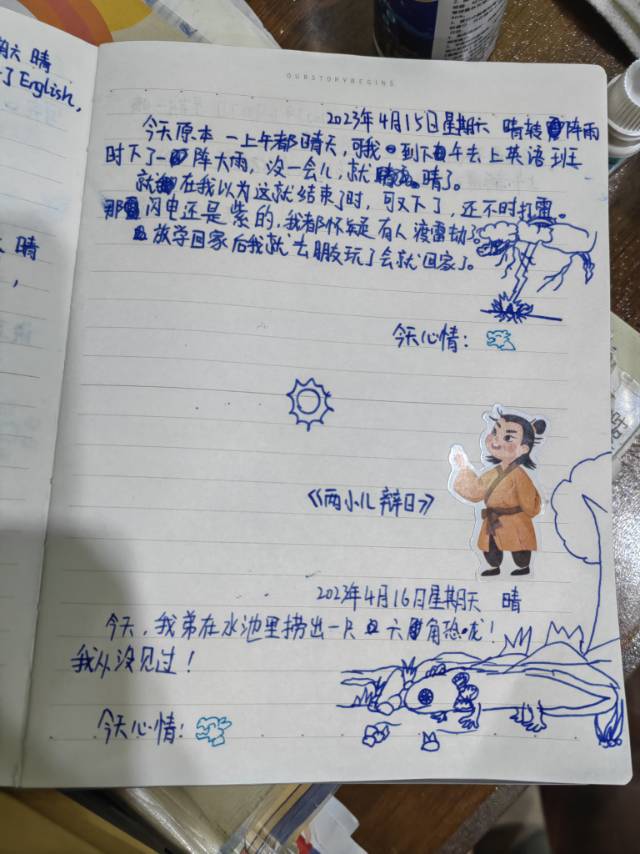 晴
了English,
晴
OURSTORYBEGINS
2023年4月15日星期天 晴转阵雨
今天原本一上午都晴天,可我一到下午去上英语班
时下了一阵大雨,没一会儿,就晴了。
就在我以为这就结束了时,可又下了,还不时打雷。
那闪电还是紫的,我都怀疑有人渡雷劫了。
放学回家后我就去朋友玩了会就回家了。
今天心情:
《两小儿辩日》
2023年4月16日星期天 晴
今天,我弟在水池里捞出一只六角恐龙!
我从没见过!
今天心情: